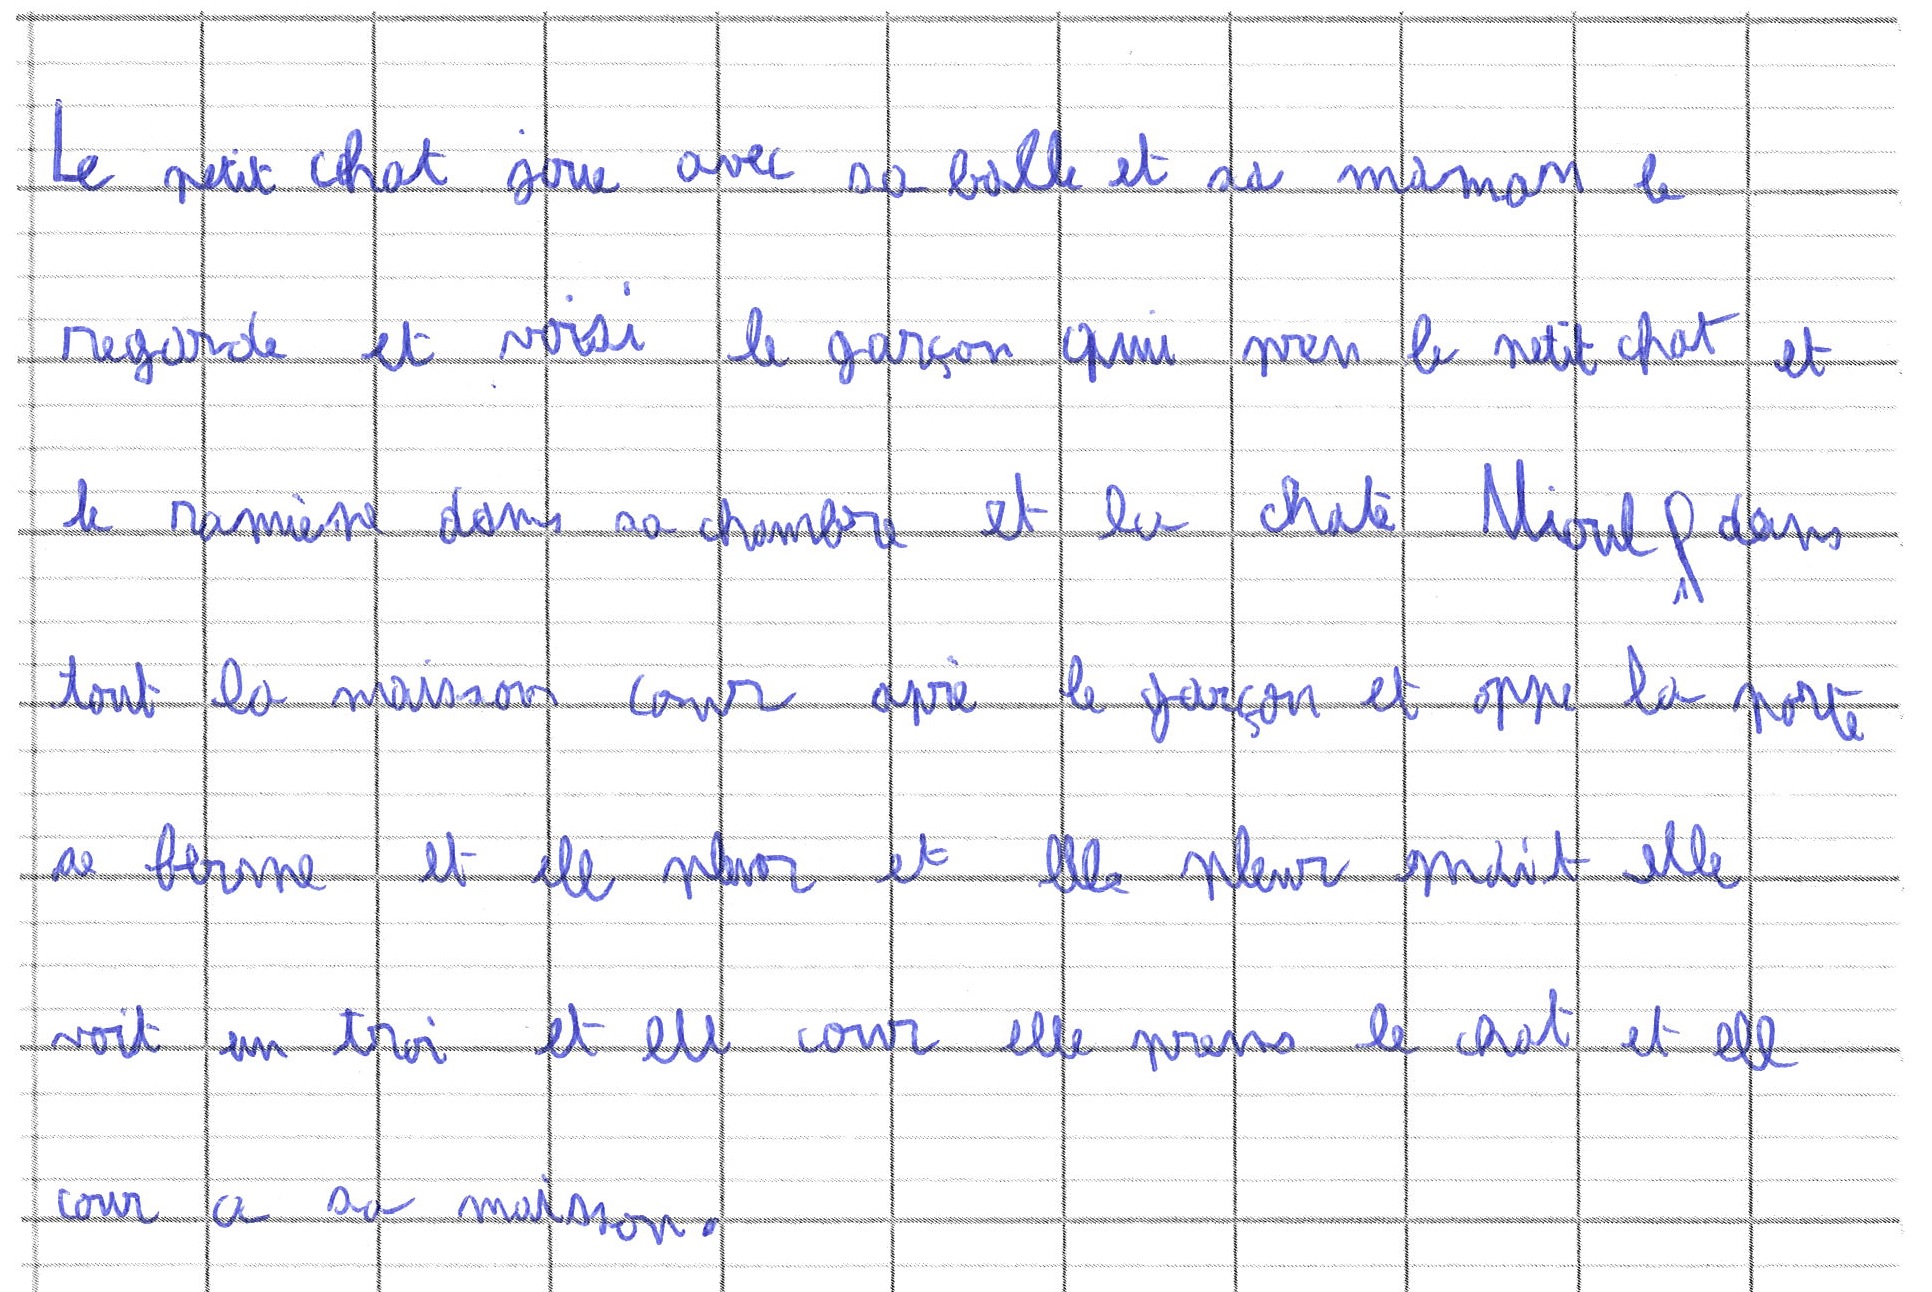 Le petit chat joue avec sa balle et sa maman le
regarde et voisi le garçon qui pren le petit chat et
le ramiène dans sa chambre et la chate dans
tout la maisson cour aprè le garçon et oppe la porte
se ferme et elle pleur et elle pleur mait elle
voit un troi et ell cour elle prens le chat et elle
cour a sa maisson.